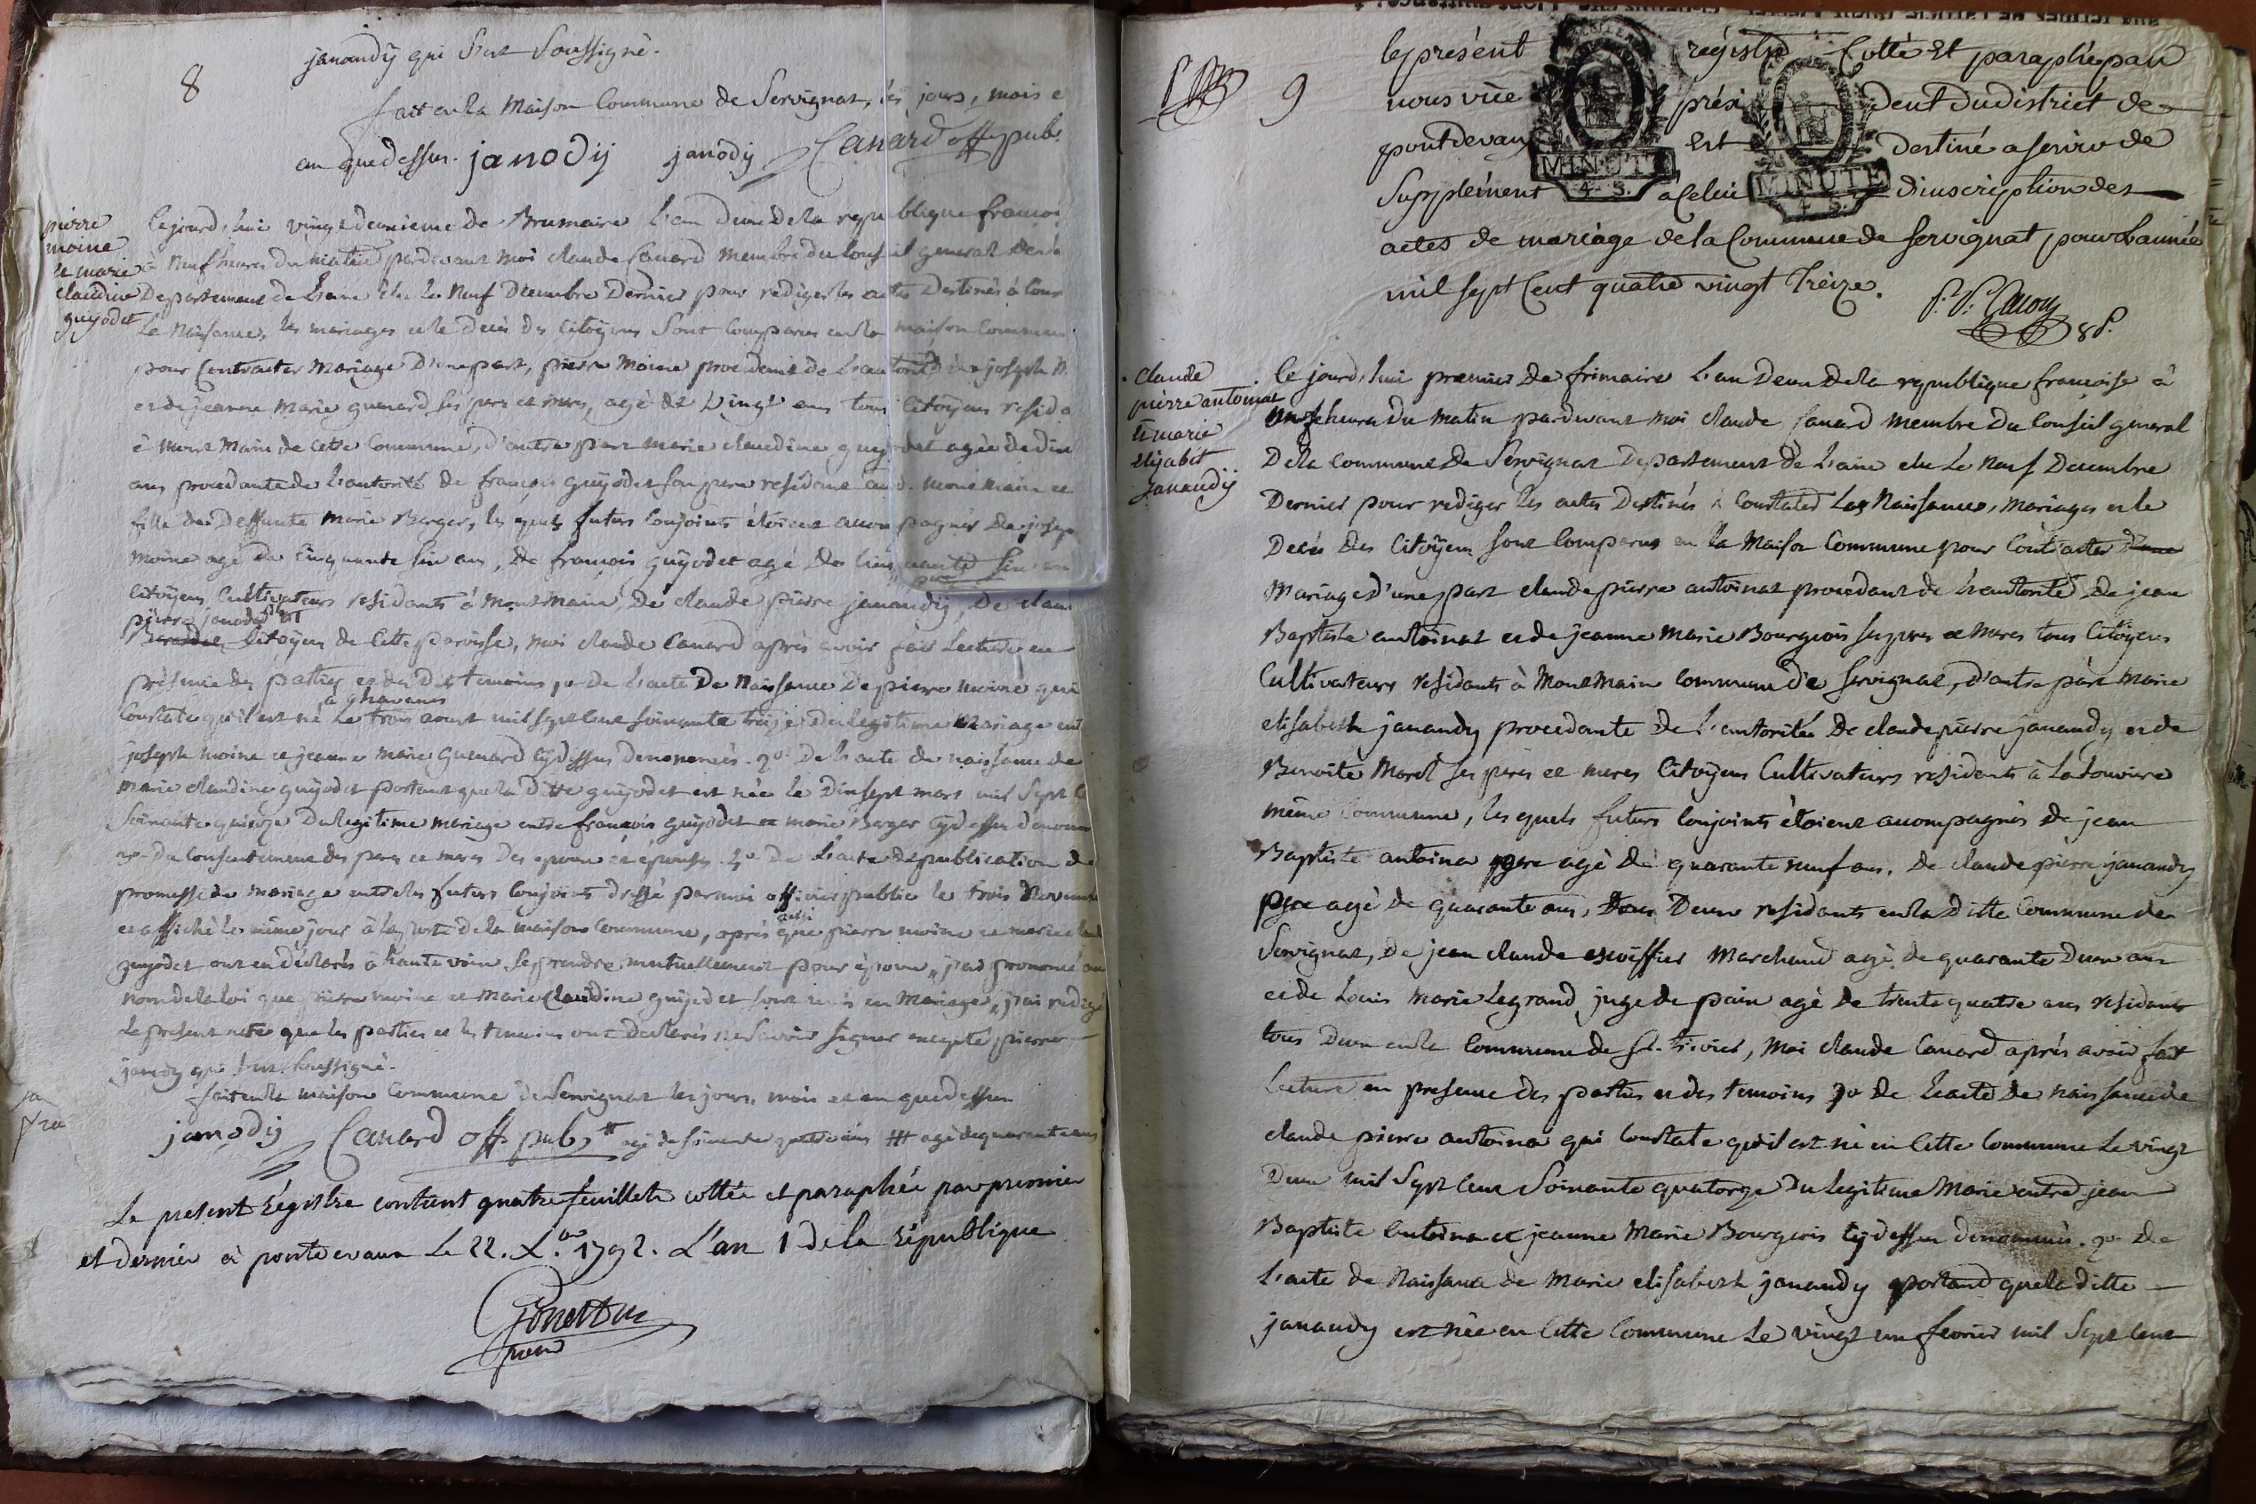 janaudÿ qui s'est soussigné.
8
fait en la maison commune de Servignat, les jours, mois e
an que dessus. janodÿ janodÿ Canard off. pub.
pierre
moine
et marie
claudine
guÿodet
Cejourd'hui vingt deuxieme de Brumaire l'an deux de la republique francoi
à neuf heures du matin pardevant moi claude Canard membre du conseil general de la
Departement de l'ain elu le neuf Decembre Dernier pour rediger les actes Destinés à cons
le naissances, les mariages et le decès des citoÿens sont comparus en la maison commun
pour contracter mariage d'une part, pierre moine procedant de l'autorité de joseph m
et de jeanne marie guenard ses pere et mere, agé de vingt ans tous citoÿens resida
à mont main de cette commune, d'autre part marie claudine guyodet agée de dix
ans procedante de l'autorité de françois guÿodet son pere résident aud. mont main et
fille de deffunte marie Berger, les quels futurs conjoints étoient accompagnés de josep
moine agé de cinquante six ans, de francois guÿodet agé de cinquante six ans
citoÿens cultivateurs residants à montmain, de claude pierre janaudÿ, de clau
pierre janodÿ
citoÿens de cette paroisse, moi claude Canard après avoir fait lecture en
présence des parties et des dits temoins 1° de l'acte de naissance de pierre moine qui
constate qu'il est né le trois aout mil sept cent soixante treize du legitime mariage ent
joseph moine et jeanne marie guenard cÿ dessus denommés. 2° de l'acte de naissance de
marie claudine guÿodet portant que la ditte guÿodet est née le dix sept mars mil sept c
soixante quinze du legitime mariage entre francois guÿodet et marie Berger cÿ dessus denomm
3° du consentement des peres et meres des epoux et épouses. 4° de l'acte de publication de
promesse de mariage entre les futurs conjoints dressé par moi officier public le trois
et affiché le même jour à la porte de la maison commune, après aussi que pierre moine et marie clau
guyodet ont eu déclarés à haute voix se prendre mutuellement pour époux, j'ai prononcé au
nom de la loi que pierre moine et marie claudine guÿodet sont unis en mariage, j'ai redigé
le present acte que les parties et les temoins ont declarés ne savoir signer excepté pierre
janody qui s'est soussigné.
fait en la maison commune de Servignat les jours, mois et an que dessus
janodÿ Canard off. pub. agé de soixante quatre ans agé de quarante ans
Le present Régistre contient quatre feuillets cottés et paraphés par premier
et dernier à pontdevaux le 22. X.bre 1792. L'an 1 de la République
9
le présent régistre Cotté Et paraphé par
nous vice président du district de
pontdevaux Est destiné a servir de
Supplément a Celui d'inscription des
MINUTE
4. S.
MINUTE
4. S.
actes de mariage de la Commune de Servignat pour l'année
mil sept Cent quatre vingt Treize.
claude
pierre antoinat
et marie
elizabet
Janaudÿ
Cejourd'hui premier de frimaire l'an deux de la republique francoise à
onze heures du matin pardevant moi claude Canard membre du conseil general
de la commune de Servignat Departement de l'ain elu le neuf Decembre
Dernier pour rediger les actes Destinés à constater les naissances, mariages et le
decès des citoÿens sont comparus en la maison commune pour contracter
mariage d'une part claude pierre antoinat procedant de l'autorité de jean
Baptiste antoinat et de jeanne marie Bourgeois ses peres et meres tous citoÿens
cultivateurs residants à montmain commune de servignat, d'autre part marie
elisabeth janaudy procedante de l'autorité de claude pierre janaudy et de
Benoite Morel ses peres et meres citoÿens cultivateurs residents à
même commune, les quels futurs conjoints étoient accompagnés de jean
Baptiste antoina pere agé de quarante neuf ans, de claude pierre janaudÿ
pere agé de quarante ans, deux residants en la ditte commune de
Servignat, de jean claude escoiffier marchand agé de quarante deux ans
et de Louis marie Legrand juge de paix agé de trente quatre ans residants
tous deux en la commune de St. trivier, moi claude Canard après avoir fait
lecture en presence des parties et des temoins 1° de l'acte de naissance de
claude pierre antoina qui constate qu'il est né en cette commune le vingt
deux mil sept cent soixante quatorze du legitime marie entre jean
Baptiste antoina et jeanne marie Bourgeois cÿ dessus denommés. 2° de
l'acte de naissance de marie elisabeth janaudy portand que la ditte
janaudy est née en cette commune le vingt un fevrier mil sept cent